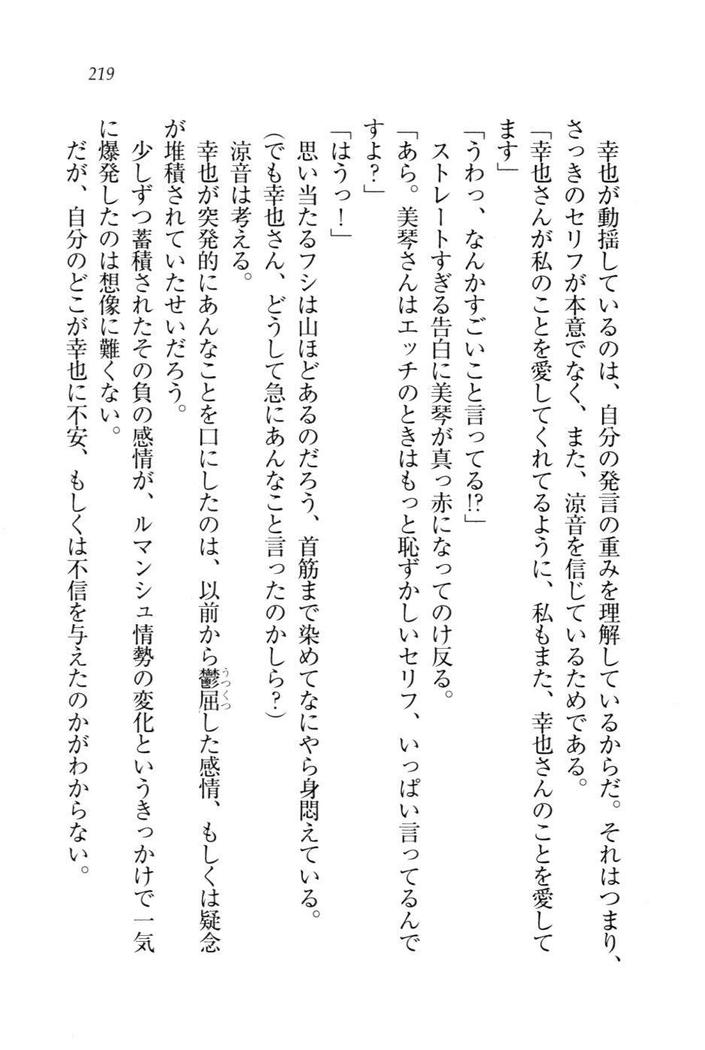 219
幸也が動揺しているのは、自分の発言の重みを理解しているからだ。それはつまり、
さっきのセリフが本意でなく、また、涼音を信じているためである。
「幸也さんが私のことを愛してくれてるように、私もまた、幸也さんのことを愛して
ます」
「うわっ、なんかすごいこと言ってる!?」
ストレートすぎる告白に美琴が真っ赤になってのけ反る。
「あら。美琴さんはエッチのときはもっと恥ずかしいセリフ、いっぱい言ってるんで
すよ?」
「はうっ!」
思い当たるフシは山ほどあるのだろう、首筋まで染めてなにやら身悶えている。
(でも幸也さん、どうして急にあんなこと言ったのかしら?)
涼音は考える。
幸也が突発的にあんなことを口にしたのは、以前から鬱屈した感情、もしくは疑念
うつくつ
が堆積されていたせいだろう。
少しずつ蓄積されたその負の感情が、ルマンシュ情勢の変化というきっかけで一気
に爆発したのは想像に難くない。
だが、自分のどこが幸也に不安、もしくは不信を与えたのかがわからない。